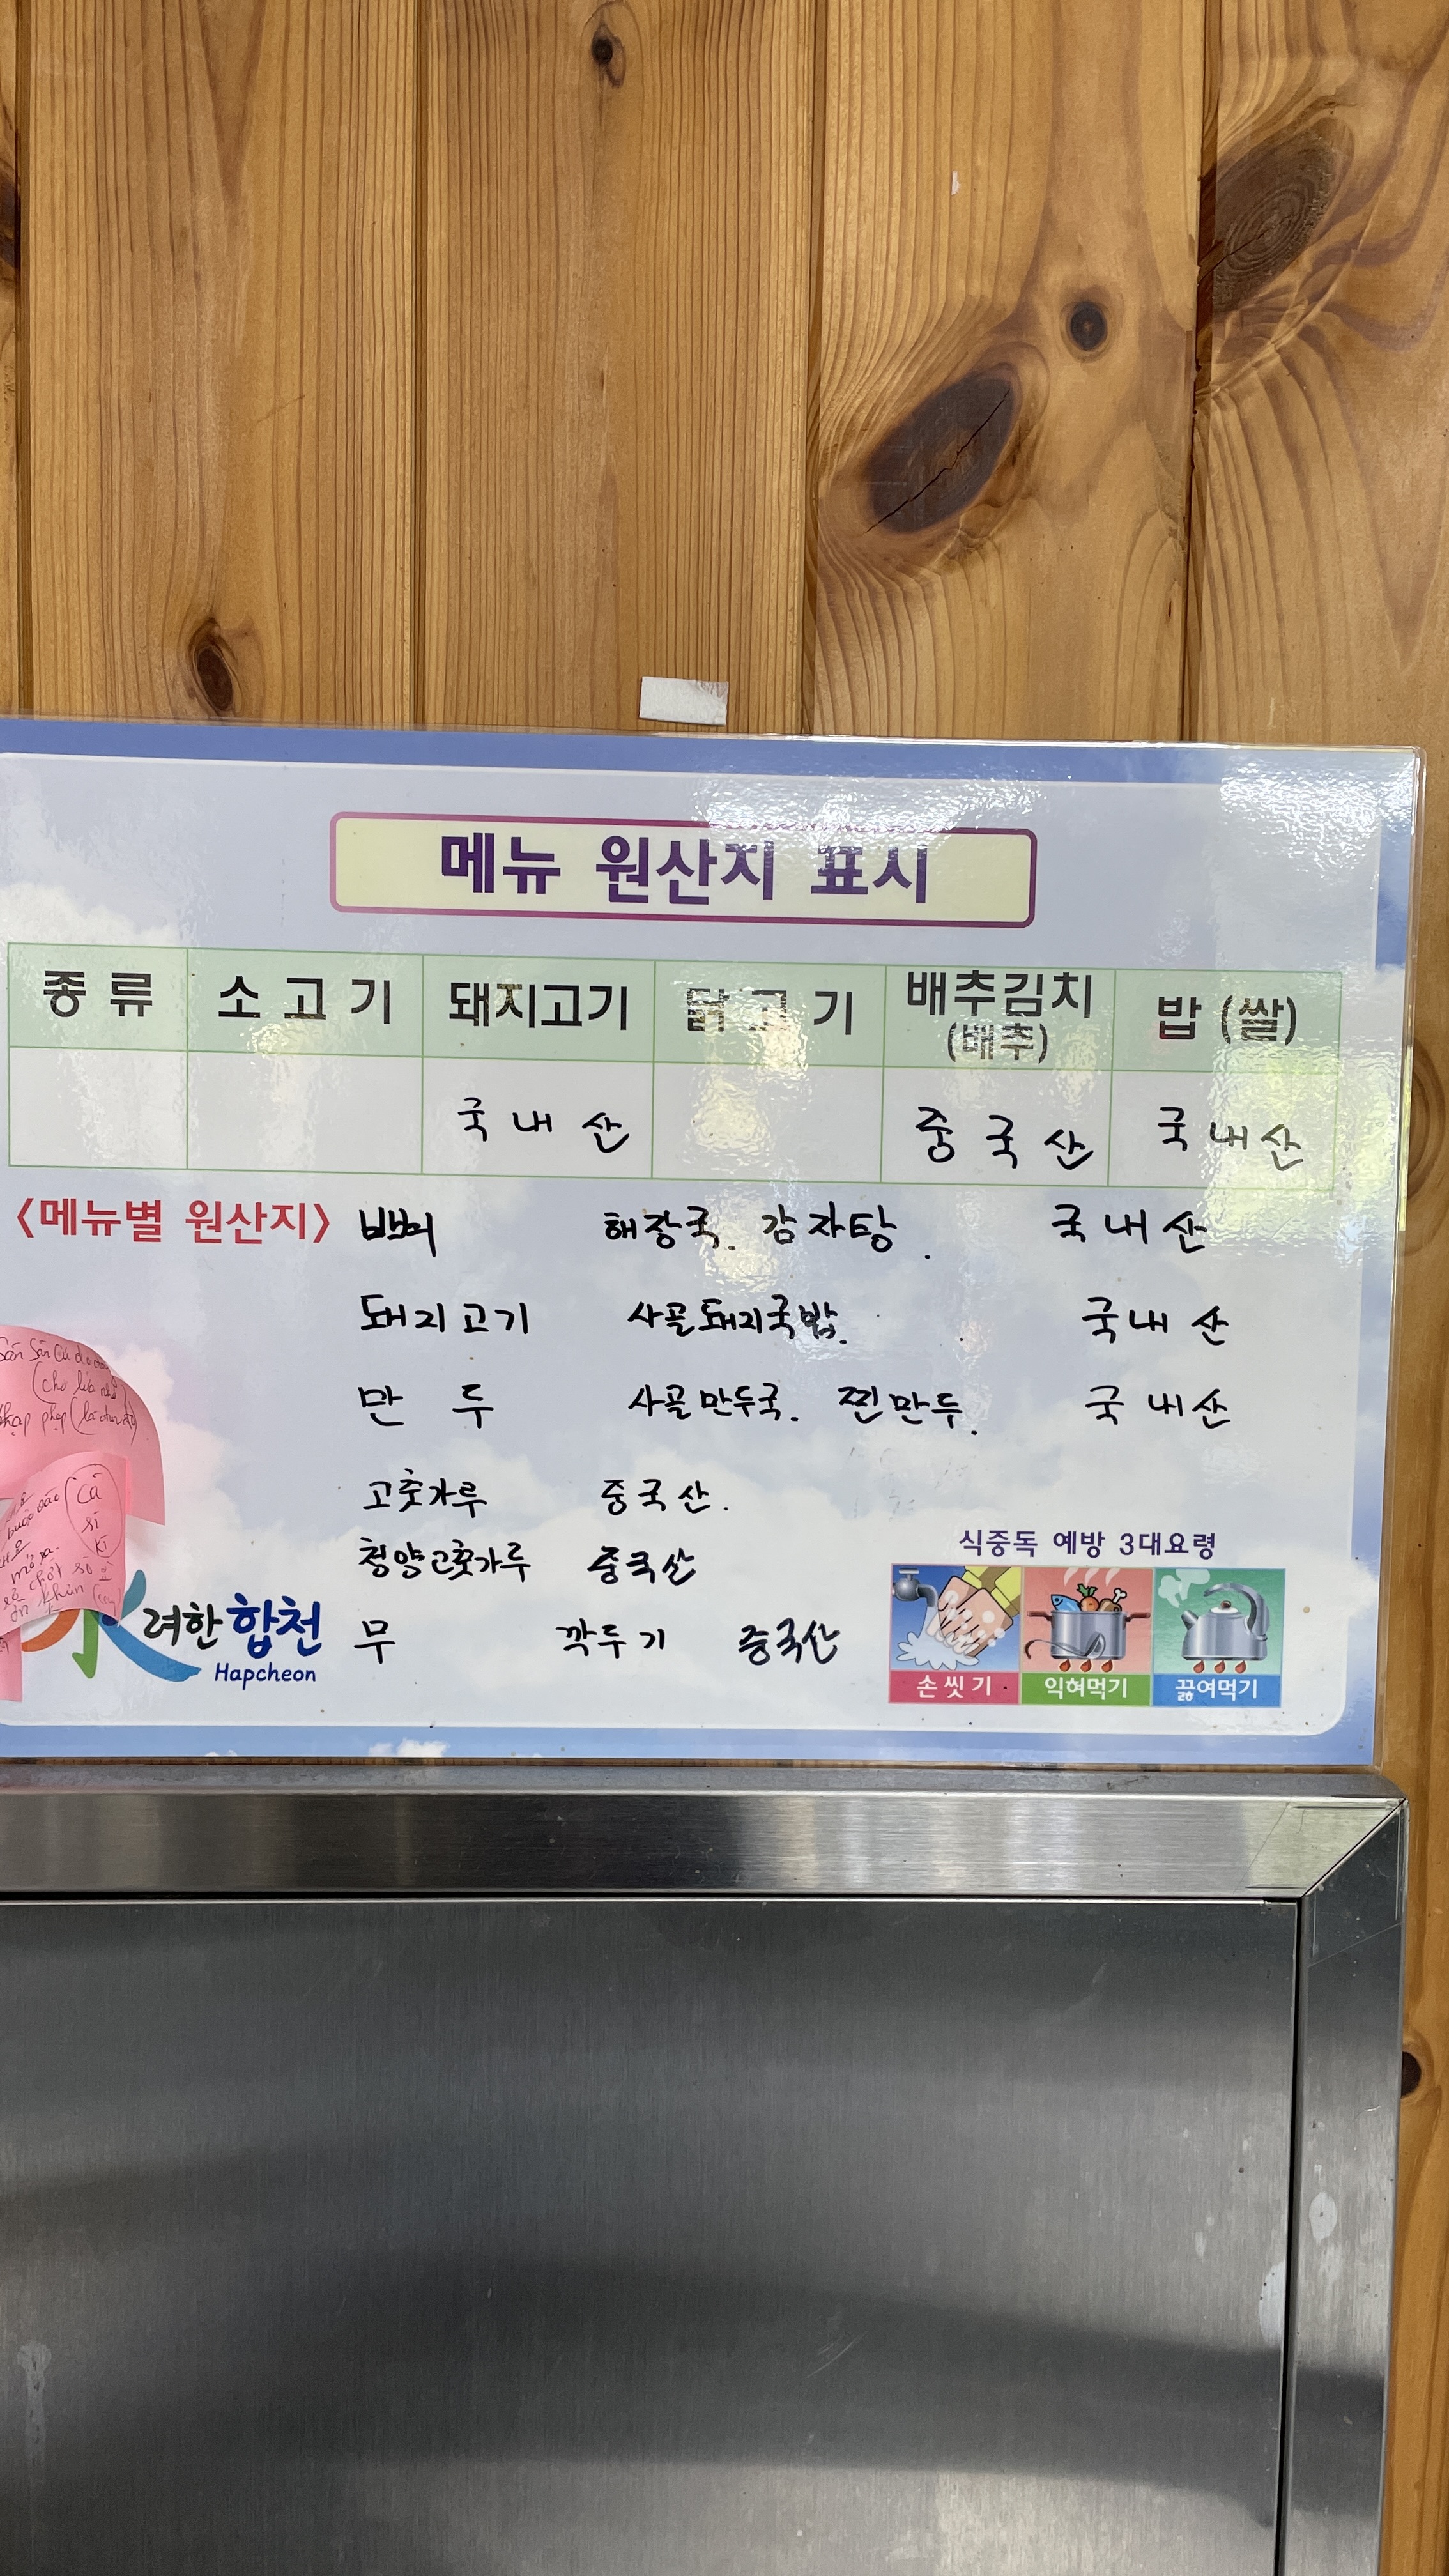 메뉴 원산지 표시
종 류 소 고 기 돼지고기 닭 고 기 배추김치 (배추) 밥 (쌀)
국 내 산 중 국 산 국내산
<메뉴별 원산지> 뼈 해장국. 감자탕. 국내산
돼지고기 사골돼지국밥. 국내산
만 두 사골만두국. 찐만두. 국내산
고춧가루 중국산.
청양고춧가루 중국산
무 깍두기 중국산
(cho lúa nhỏ)
phạp
cá
sĩ
kĩ
려한 합천
Hapcheon
식중독 예방 3대요령
손 씻 기 익혀먹기 끓여먹기